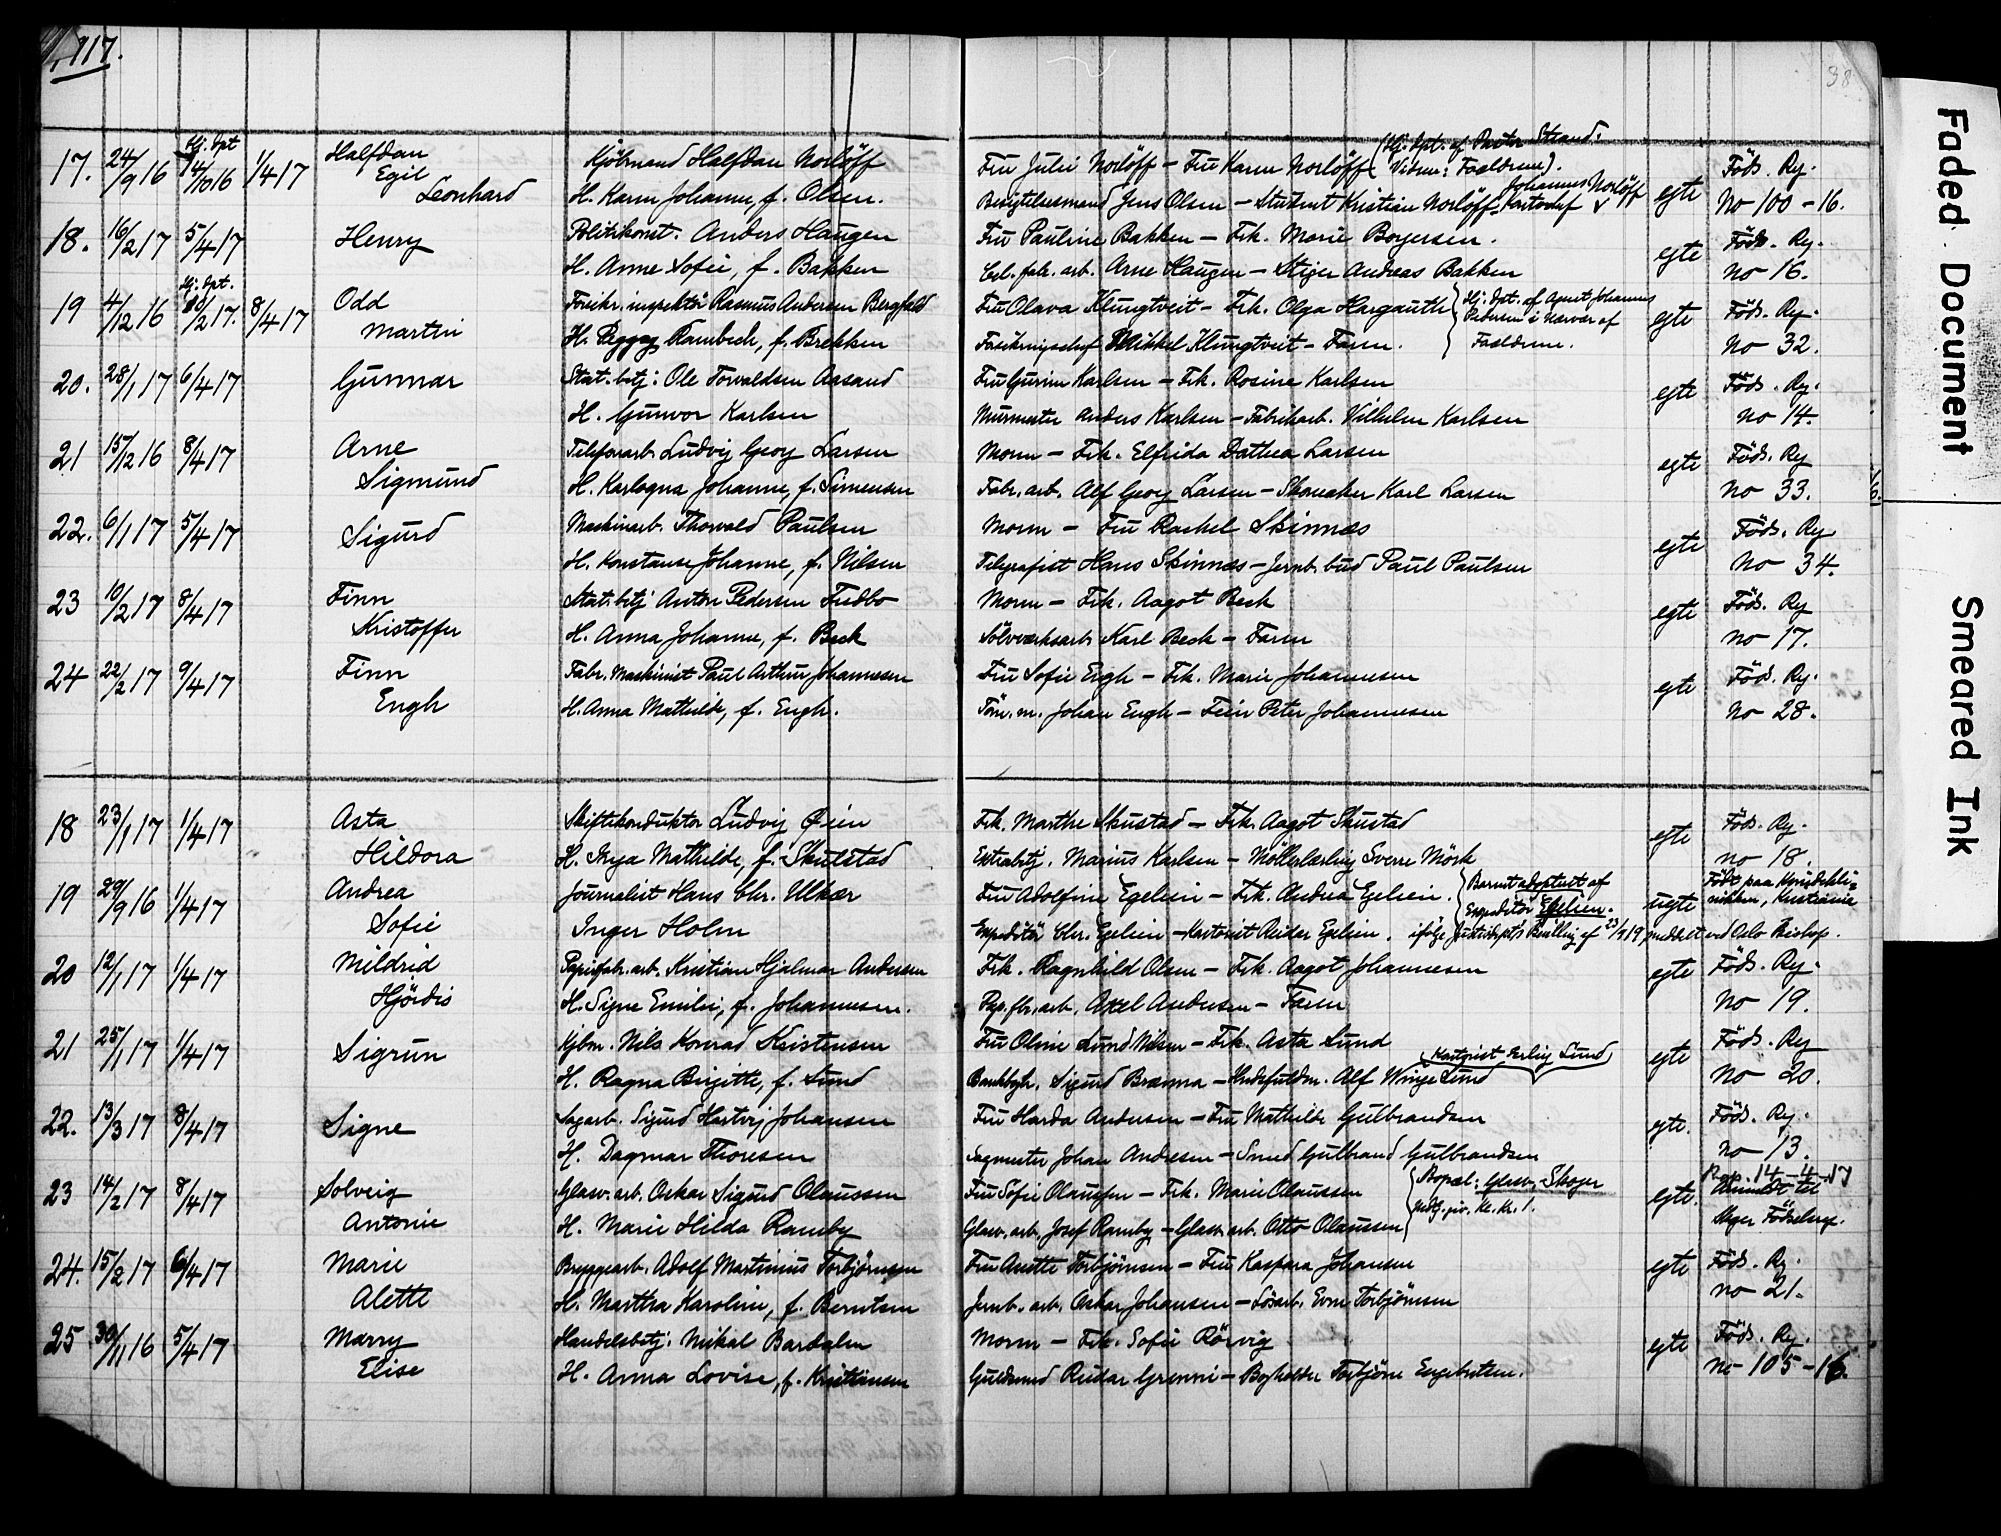 1917.
38
17. 24/9 16 Hj. dpt 14/10 16 1/4 17 Halfdan Egil Leonhard
Kjöbmand Halfdan Norlöff
H. Karen Johanne, f. Olsen.
Fru Julie Norlöff – Fru Karen Norlöff (Hj. dpt. af Pastor Strand:
Vidner: Forældrene).
Besigtelsesmand Jens Olsen – Student Kristian Norlöff – Johannes Norlöff
egte
Föds. Rg.
No 100 – 16.
18. 16/2 17 5/4 17 Henry
Politikonst. Anders Haugen
H. Anne Sofie, f. Bakken
Fru Pauline Bakken – Frk. Marie Borgersen.
Cel. fabr. arb. Arne Haugen – Stiger Andreas Bakken
egte
Föds. Rg.
No 16.
19 4/12 16 Hj. dpt. 10/2 17. 8/4 17 Odd Martin
Forsikr. inspektör Rasmus Andersen Bergfald
H. Peggy Rambech, f. Brekken
Fru Olava Klungtveit – Frk. Olga Hargauth
Forsikringschef Mikkel Klungtveit – Faren.
Hj. dpt. af Agent Johannes
Pedersen i nærvær af
Forældrene.
egte
Föds. Rg.
No 32.
20. 28/1 17 6/4 17 Gunnar
Stat. betj. Ole Torvaldsen Aasand
H. Gunvor Karlsen
Fru Gurine Karlsen – Frk. Rosine Karlsen
Murmester Anders Karlsen – Fabrikarb. Vilhelm Karlsen
egte
Föds. Rg.
No 14.
21 15/12 16 8/4 17 Arne Sigmund
Telefonarb. Ludvig Georg Larsen
H. Karlogna Johanne, f. Simensen
Moren – Frk. Elfrida Dathea Larsen
Fabr. arb. Alf Georg Larsen – Skomaker Karl Larsen
egte
Föds. Rg
No 33.
22. 6/1 17 5/4 17 Sigurd
Maskinarb. Thorvald Paulsen
H. Konstanse Johanne, f. Nilsen
Moren – Fru Rachel Skinnes
Telegrafist Hans Skinnes – Jernb. bud Paul Paulsen
egte
Föds. Rg
No 34.
23 10/2 17 8/4 17 Finn Kristoffer
Stat. betj Anton Pedersen Fredbo
H. Anna Johanne, f. Beck
Moren – Frk. Aagot Beck
Sölvverksarb. Karl Beck – Faren
egte
Föds. Rg
No 17.
24 22/2 17 9/4 17 Finn Engh
Fabr. Maskinist Paul Arthur Johannesen
H. Anna Mathilde, f. Engh.
Fru Sofie Engh – Frk. Marie Johannesen
Töm. m. Johan Engh – Feier Peter Johannesen
egte
Föd. Rg.
No 28.
18 23/1 17 1/4 17 Asta Hildora
Skiftekonduktör Ludvig Öien
H. Inga Mathilde, f. Skulstad
Frk. Marthe Skustad – Frk. Aagot Skustad
Extrabtj. Marius Karlsen – Möllerlærling Sverre Mörk
egte
Föds. Rg.
No 18.
19 29/9 16 1/4 17 Andrea Sofie
Journalist Hans Chr. Ulkær
Inger Holm
Fru Adolfine Egelien – Frk. Andrea Egelien.
Barnet adoptert af
Expeditör Egelien.
Expeditör Chr. Egelien – Kontorist Reidar Egelien. ifölge Justisdept's Bevilling af 23/9 19, meddelt ved Oslo Biskop.
uegte
Födt paa Kvindekli=
nikken, Kristiania
20 12/1 17 1/4 17 Mildrid Hjördis
Papirfabr. arb. Kristian Hjalmar Andersen
H. Signe Emilie, f. Johannesen.
Frk. Ragnhild Olsen – Frk. Aagot Johannesen
Pap. fbr. arb. Axel Andersen – Faren
egte
Föds. Rg.
No 19.
21 25/1 17 1/4 17 Sigrun
Kjbm. Nils Konrad Kristensen
H. Ragna Birgitte, f. Lund
Fru Oline Lund Nilsen – Frk. Asta Lund
(Kontorist Erling Lund)
Bankbgh. Sigurd Brænna – Handelsfuldm. Alf Winge Lund
egte
Föds. Rg
No 20.
22. 13/3 17 8/4 17 Signe
Sagarb. Sigurd Hartvig Johansen
H. Dagmar Thoresen
Fru Harda Andersen – Fru Mathilde Gulbrandsen
Sagmester Johan Andresen – Smed Gulbrand Gulbrandsen
egte.
Föds. Rg.
No 13.
23 14/2 17 8/4 17 Solveig Antonie
Glasv. arb. Oskar Sigurd Olaussen
H. Marie Hilda Ramby
Fru Sofie Olaussen – Frk. Marie Olaussen
Glasv. arb. Josef Ramby – Glasv. arb. Otto Olaussen
Bopæl: Glasv., Skoger
egte.
Rgp. 14-4-17
Anmeldt til
Skoger Födselsrg.
24. 15/2 17 6/4 17 Marie Alette
Bryggearb. Adolf Martinius Torbjörnsen
H. Martha Karoline, f. Berntsen
Fru Anette Torbjörnsen – Fru Kaspara Johansen
Jernb. arb. Oskar Johansen – Lösarb. Even Torbjörnsen
egte
Föds. Rg.
No 21.
25 30/11 16 5/4 17 Marry Elise
Handelsbetj. Mikal Bardalen
H. Anna Lovise, f. Kristiansen
Moren – Frk. Sofie Rörvig
Guldsmed Reidar Grenni – Bogholder Torbjörn Engebretsen.
egte
Föds. Rg.
No 105 – 16.
Faded Document
Smeared Ink